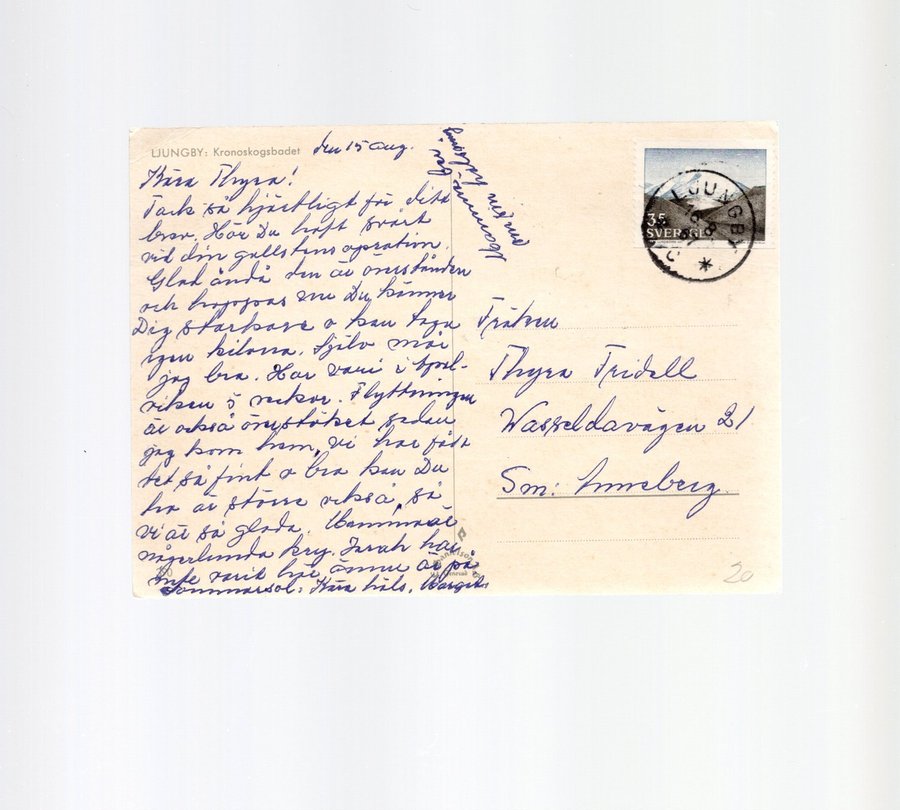 LJUNGBY: Kronoskogsbadet
den 15 aug.
Kära Thyra!
Tack så hjärtligt för ditt
brev. Har Du haft svårt
vid din gallstensopration.
Glad ändå den är överstånden
och hoppas nu Du känner
Dig starkare o kan taga
igen kilona. Själv mår
jag bra. Har vari i Apel-
viken 5 veckor. Flyttningen
är också överstöket sedan
jag kom hem, vi har fått
det så fint o bra kan Du
tro är större också, så
vi är så glada. Mamma är
någerlunda kry. Sarah har
inte varit här ännu är på
Sommarsol. Kära häls. Margit.
35
SVERIGE
LJUNGBY
Fröken
Thyra Fridell
Wasseldavägen 21
Sm: Anneberg.
20